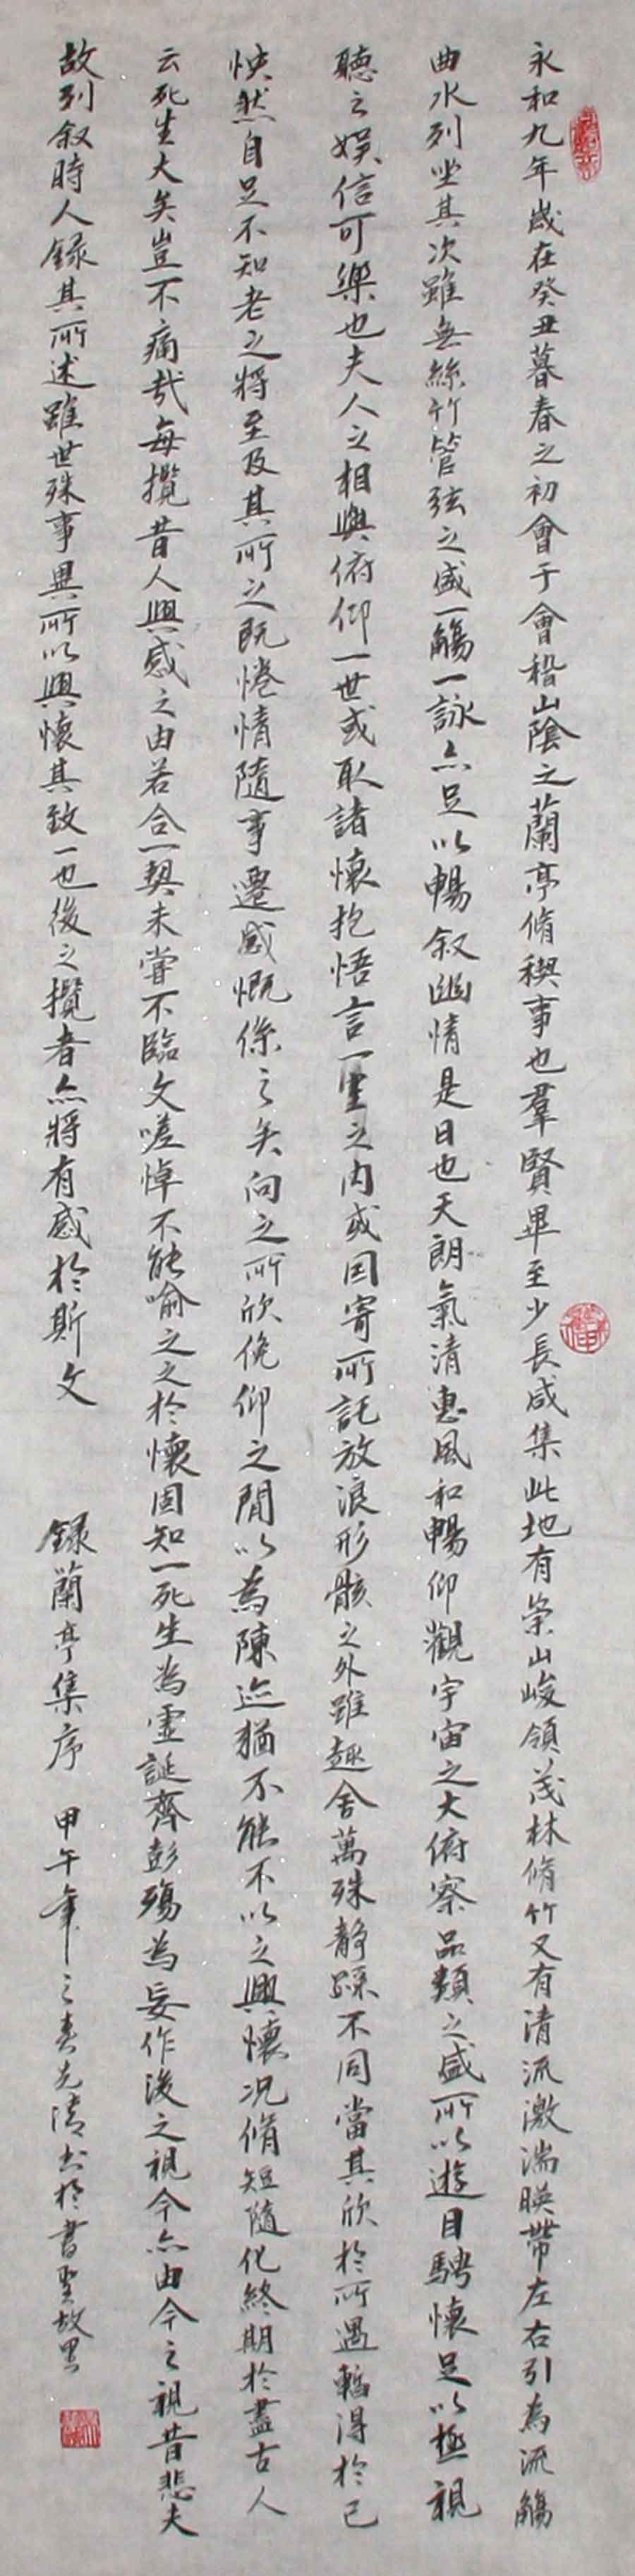 永和九年歲在癸丑暮春之初會于會稽山陰之蘭亭脩稧事也羣賢畢至少長咸集此地有崇山峻領茂林脩竹又有清流激湍暎帶左右引為流觴
曲水列坐其次雖無絲竹管弦之盛一觴一詠亦足以暢叙幽情是日也天朗氣清惠風和暢仰觀宇宙之大俯察品類之盛所以遊目騁懷足以極視
聽之娛信可樂也夫人之相與俯仰一世或取諸懷抱悟言一室之內或因寄所託放浪形骸之外雖趣舍萬殊靜躁不同當其欣於所遇暫得於己
怏然自足不知老之將至及其所之既惓情隨事遷感慨係之矣向之所欣俛仰之閒以為陳迹猶不能不以之興懷況脩短隨化終期於盡古人
云死生大矣豈不痛哉每攬昔人興感之由若合一契未嘗不臨文嗟悼不能喻之之於懷固知一死生為虛誕齊彭殤為妄作後之視今亦由今之視昔悲夫
故列叙時人錄其所述雖世殊事異所以興懷其致一也後之攬者亦將有感於斯文
錄蘭亭集序 甲午年之春光清書於書聖故里